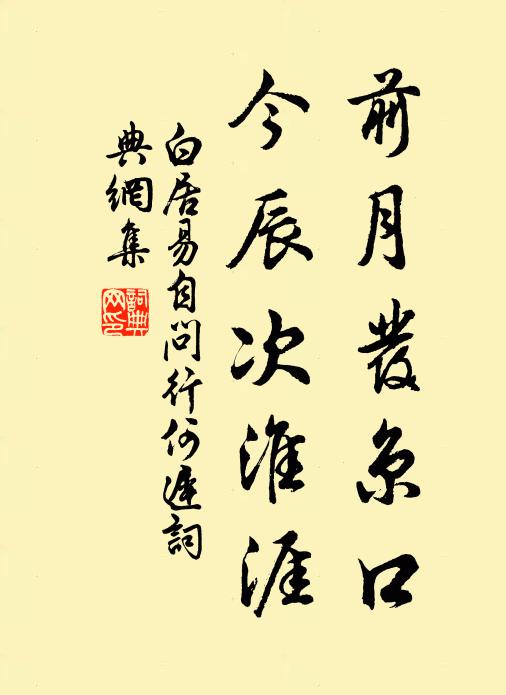 前月發京口
今辰次淮涯
白居易自問行何遲詞
典網集
詞典網印